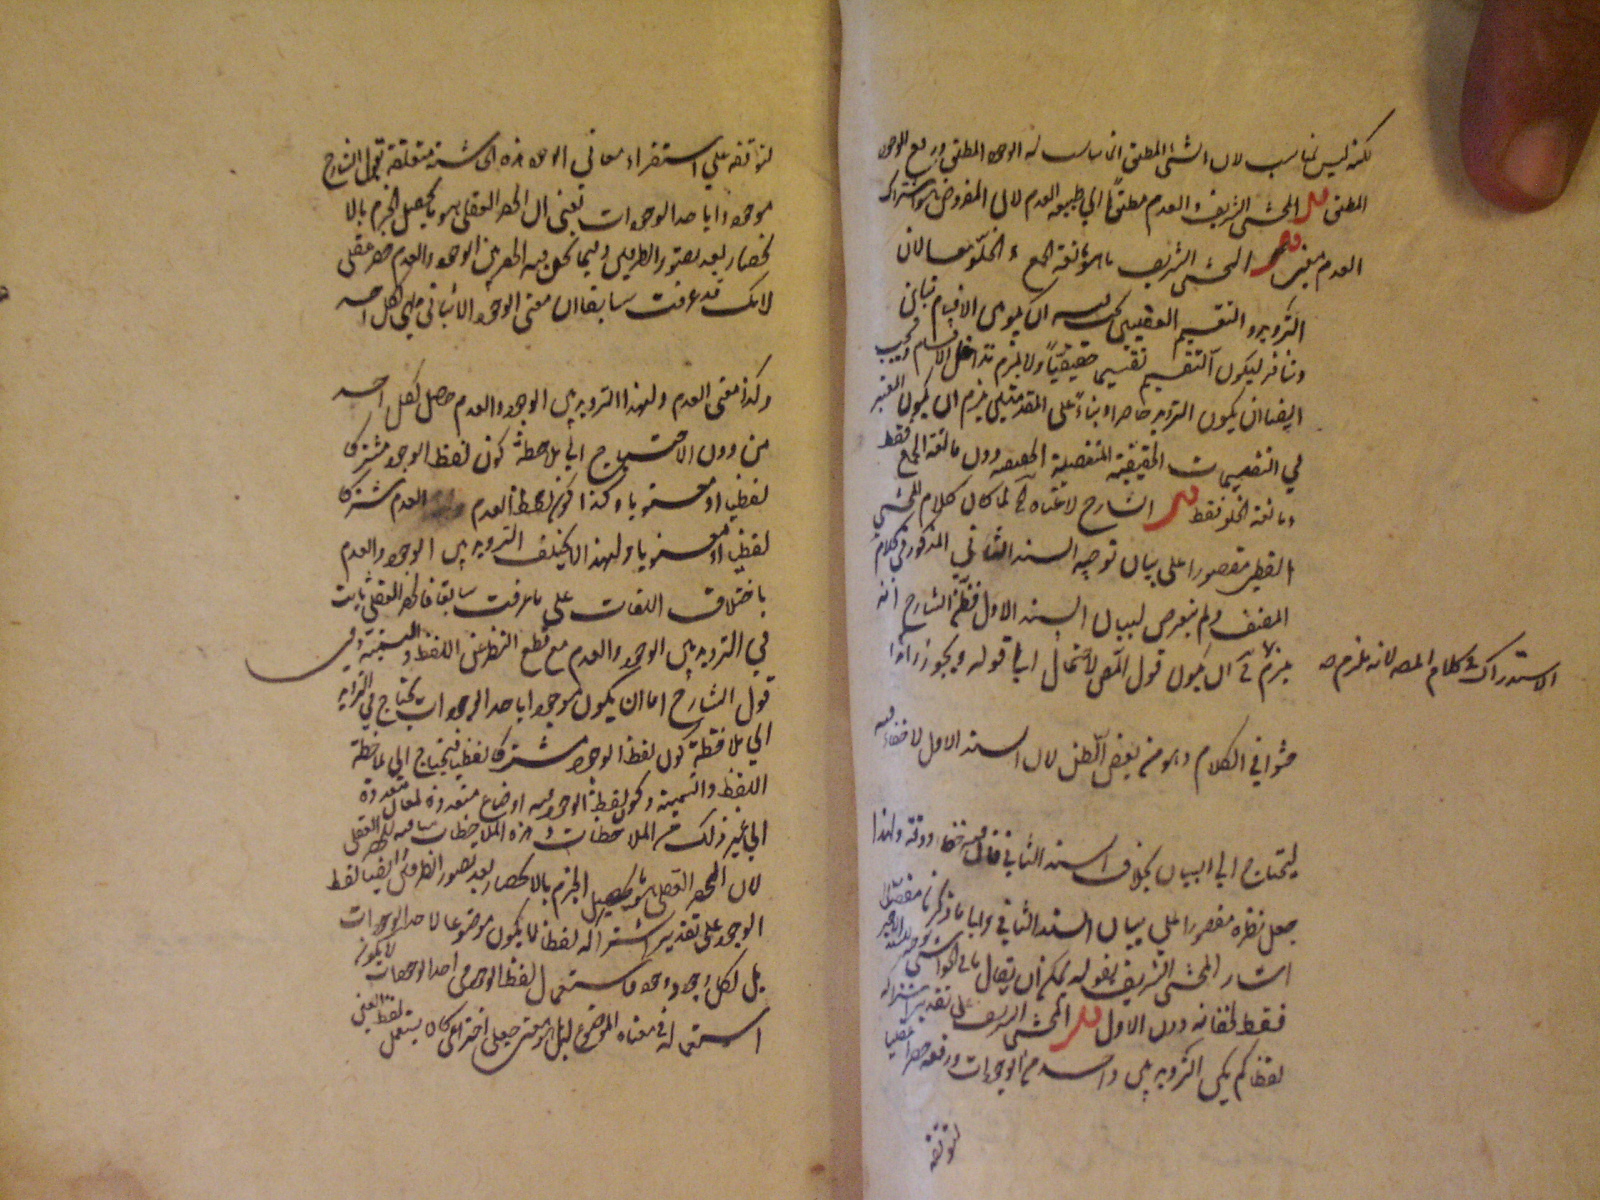 لكنه ليس بمناسب لان الشئ المطلق انما يناسب له الوجود المطلق ورفع الوجود
المطلق قال المحشى الشريف والعدم مطلقا اى طبيعة العدم لان المفروض هو اشتراك
العدم معنى قال المحشى الشريف مانعة الجمع الخلو معا لان
الترديد والتقسيم العقليين يجب فيه ان يكون بين الاقسام تباين
وتنافر ليكون التقسيم تقسيما حقيقيا ولا يلزم تداخل الاقسام ويجب
ايضا ان يكون الترديد حاصرا وبناء على المقدمتين يلزم ان يكون المعتبر
فى التقسيمات الحقيقية المنفصلة الحقيقية دون مانعة الجمع فقط
ومانعة الخلو فقط قال الشارح لما كان كلام المحشى
القطبى مقصورا على بيان توجيه السند الثانى المذكور فى كلام
المصنف ولم يتعرض لبيان السند الاول فظن الشارح انه
يلزم ان يكون قول المص اى قوله ويجوز زائدا
الاستدراك فى كلام المص لانه يلزم منه
حشوا فى الكلام وهو من بعض الظن لان السند الاول لا خفاء فيه
ليحتاج الى البيان بخلاف السند الثانى فان فيه خفاء ودقة ولهذا
جعل نظره مقصورا على بيان السند الثانى والى ما ذكرنا مفصلا
اشار المحشى الشريف بقوله يمكن ان يقال
فقط لخفائه دون الاول قال المحشى الشريف على تقدير اشتراكه
لفظا لم يكن الترديد بين واحد من الوجودات ورفعه حصرا عقليا
لتوقفه
لتوقفه على استقراء معانى الوجود هذه الحاشية متعلقة بقول الشارح
موجودا باحد الوجودات يعنى ان الحصر العقلى هو ما يحصل الجزم بالا
نحصار بعد تصور الطرفين وفيما نحن فيه الحصر بين الوجود والعدم حصر عقلى
لانك قد عرفت سابقا ان معنى الوجود لكل احد
وكذا معنى العدم ولهذا الترديد بين الوجود والعدم حصل لكل احد
من دون الاحتياج الى ملاحظة كون لفظ الوجود مشتركا
لفظيا او معنويا وكذا كون لفظ العدم مشتركا
لفظيا او معنويا ولهذا لا يختلف الترديد بين الوجود والعدم
باختلاف اللغات على ما عرفت سابقا فالحصر العقلى ثابت
فى الترديد بين الوجود والعدم مع قطع النظر عن اللفظ والتسمية وفى
قول الشارح اما ان يكون موجودا باحد الوجودات يحتاج فى الترديد
الى ملاحظة كون لفظ الوجود مشتركا لفظيا فيحتاج الى ملاحظة
اللفظ والتسمية وكون لفظ الوجود له اوضاع متعددة لمعان متعددة
الى غير ذلك من الملاحظات وهذه الملاحظات منافية للحصر العقلى
لان الحصر العقلى هو ما يحصل الجزم بالانحصار بعد تصور الطرفين ايضا لفظ
الوجود على تقدير اشتراكه لفظا لا يكون موضوعا لاحد الوجودات
بل لكل وجود وجود فاستعمال لفظ الوجود فى احد الوجودات لا يكون
استعماله فى معناه الموضوع له بل هو معنى جعلى اختراعى كان يستعمل لفظ العين